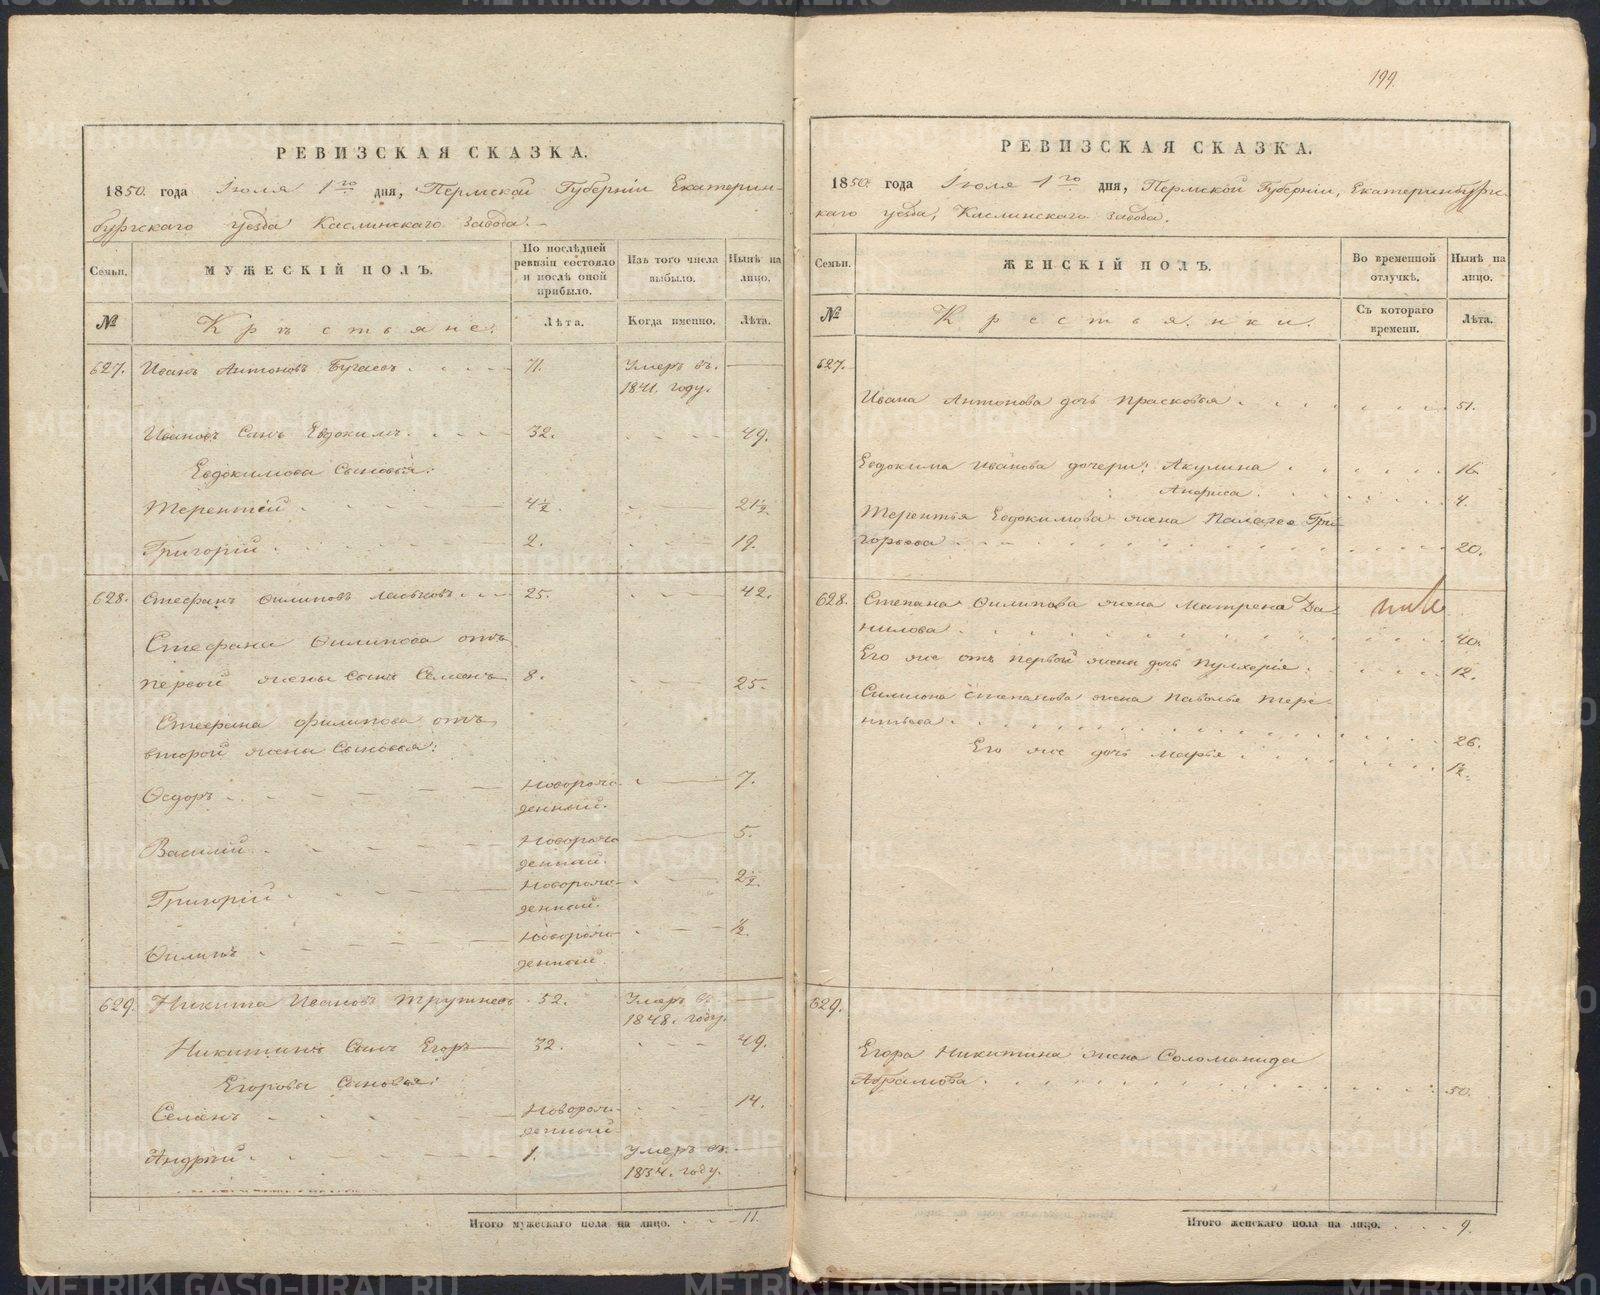 РЕВИЗСКАЯ СКАЗКА.
1850. года Іюля 1го дня, Пермской Губерніи Екатерин-
бургскаго уезда Каслинскаго завода.
Семьи.
МУЖЕСКІЙ ПОЛЪ.
По послѣдней ревизіи состояло и послѣ оной прибыло.
Изъ того числа выбыло.
Нынѣ на лицо.
№
Крестьяне.
Лѣта.
Когда именно.
Лѣта.
627. Иванъ Антоновъ Бугаевъ 71. Умеръ въ
1841. году.
Ивановъ Сынъ Евдокимъ 32. 49.
Евдокимова Сыновья:
Терентій 4½ 21½
Григорій 2. 19.
628. Стефанъ Филиповъ 25. 42.
Стефана Филипова отъ
первой жены Сынъ Семенъ 8. 25.
Стефана Филипова отъ
второй жены Сыновья:
Ѳедоръ Новорож-
денный. 7.
Василій Новорож-
денный. 5.
Григорій Новорож-
денный. 2½
Филипъ Новорож-
денный. ½
629. Никита Ивановъ Трутневъ 52. Умеръ в
1848. году.
Никитинъ Сынъ Егоръ 32. 49.
Егоровы Сыновья:
Новорож-
денный 14.
Андрій 1. Умеръ въ
1834. году.
Итого мужескаго пола на лицо. 11.
199.
РЕВИЗСКАЯ СКАЗКА.
1850 года Іюля 1го дня, Пермской Губерніи, Екатеринбургс-
каго уезда, Каслинскаго завода.
Семьи.
ЖЕНСКІЙ ПОЛЪ.
Во временной отлучкѣ.
Нынѣ на лицо.
№
Крестьянки.
Съ котораго времени.
Лѣта.
627.
Ивана Антонова дочь Прасковья 51.
Евдокима Иванова дочери: Акулина 16
Анфиса 4.
Терентья Евдокимова жена Палагея Гри-
горьева 20.
628. Степана Филипова жена Матрена Да-
нилова 40.
Его же отъ первой жены дочь Пулхерія 12.
Симиона Степанова жена Тере-
нтьева 26.
Его же дочь Марья 1½
629.
Егора Никитина жена Соломанида
Абрамова 50.
Итого женскаго пола на лицо. 9.
METRIKI.GASO-URAL.RU